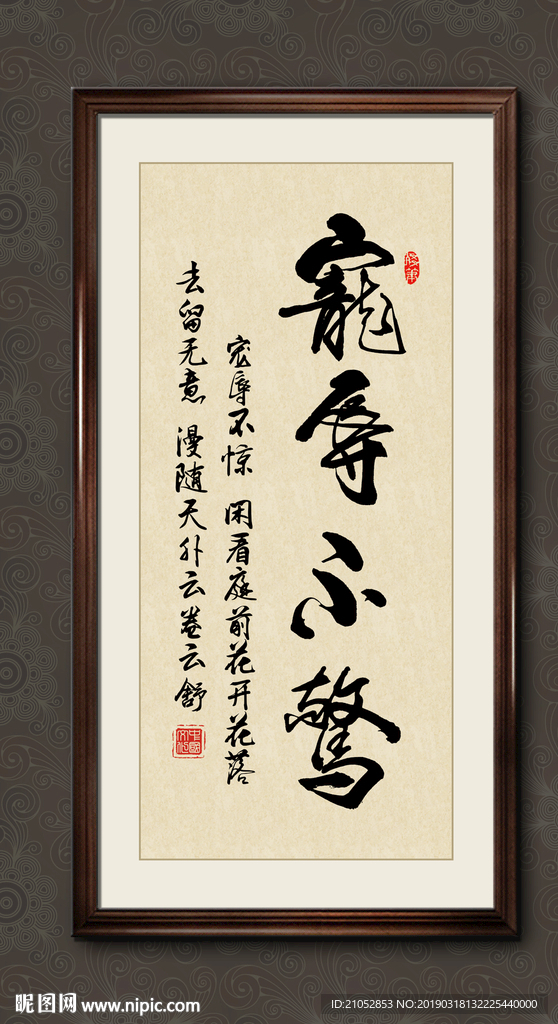 寵辱不驚
宠辱不惊 闲看庭前花开花落
去留无意 漫随天外云卷云舒
昵图网 www.nipic.com
ID:21052853 NO:20190318132225440000